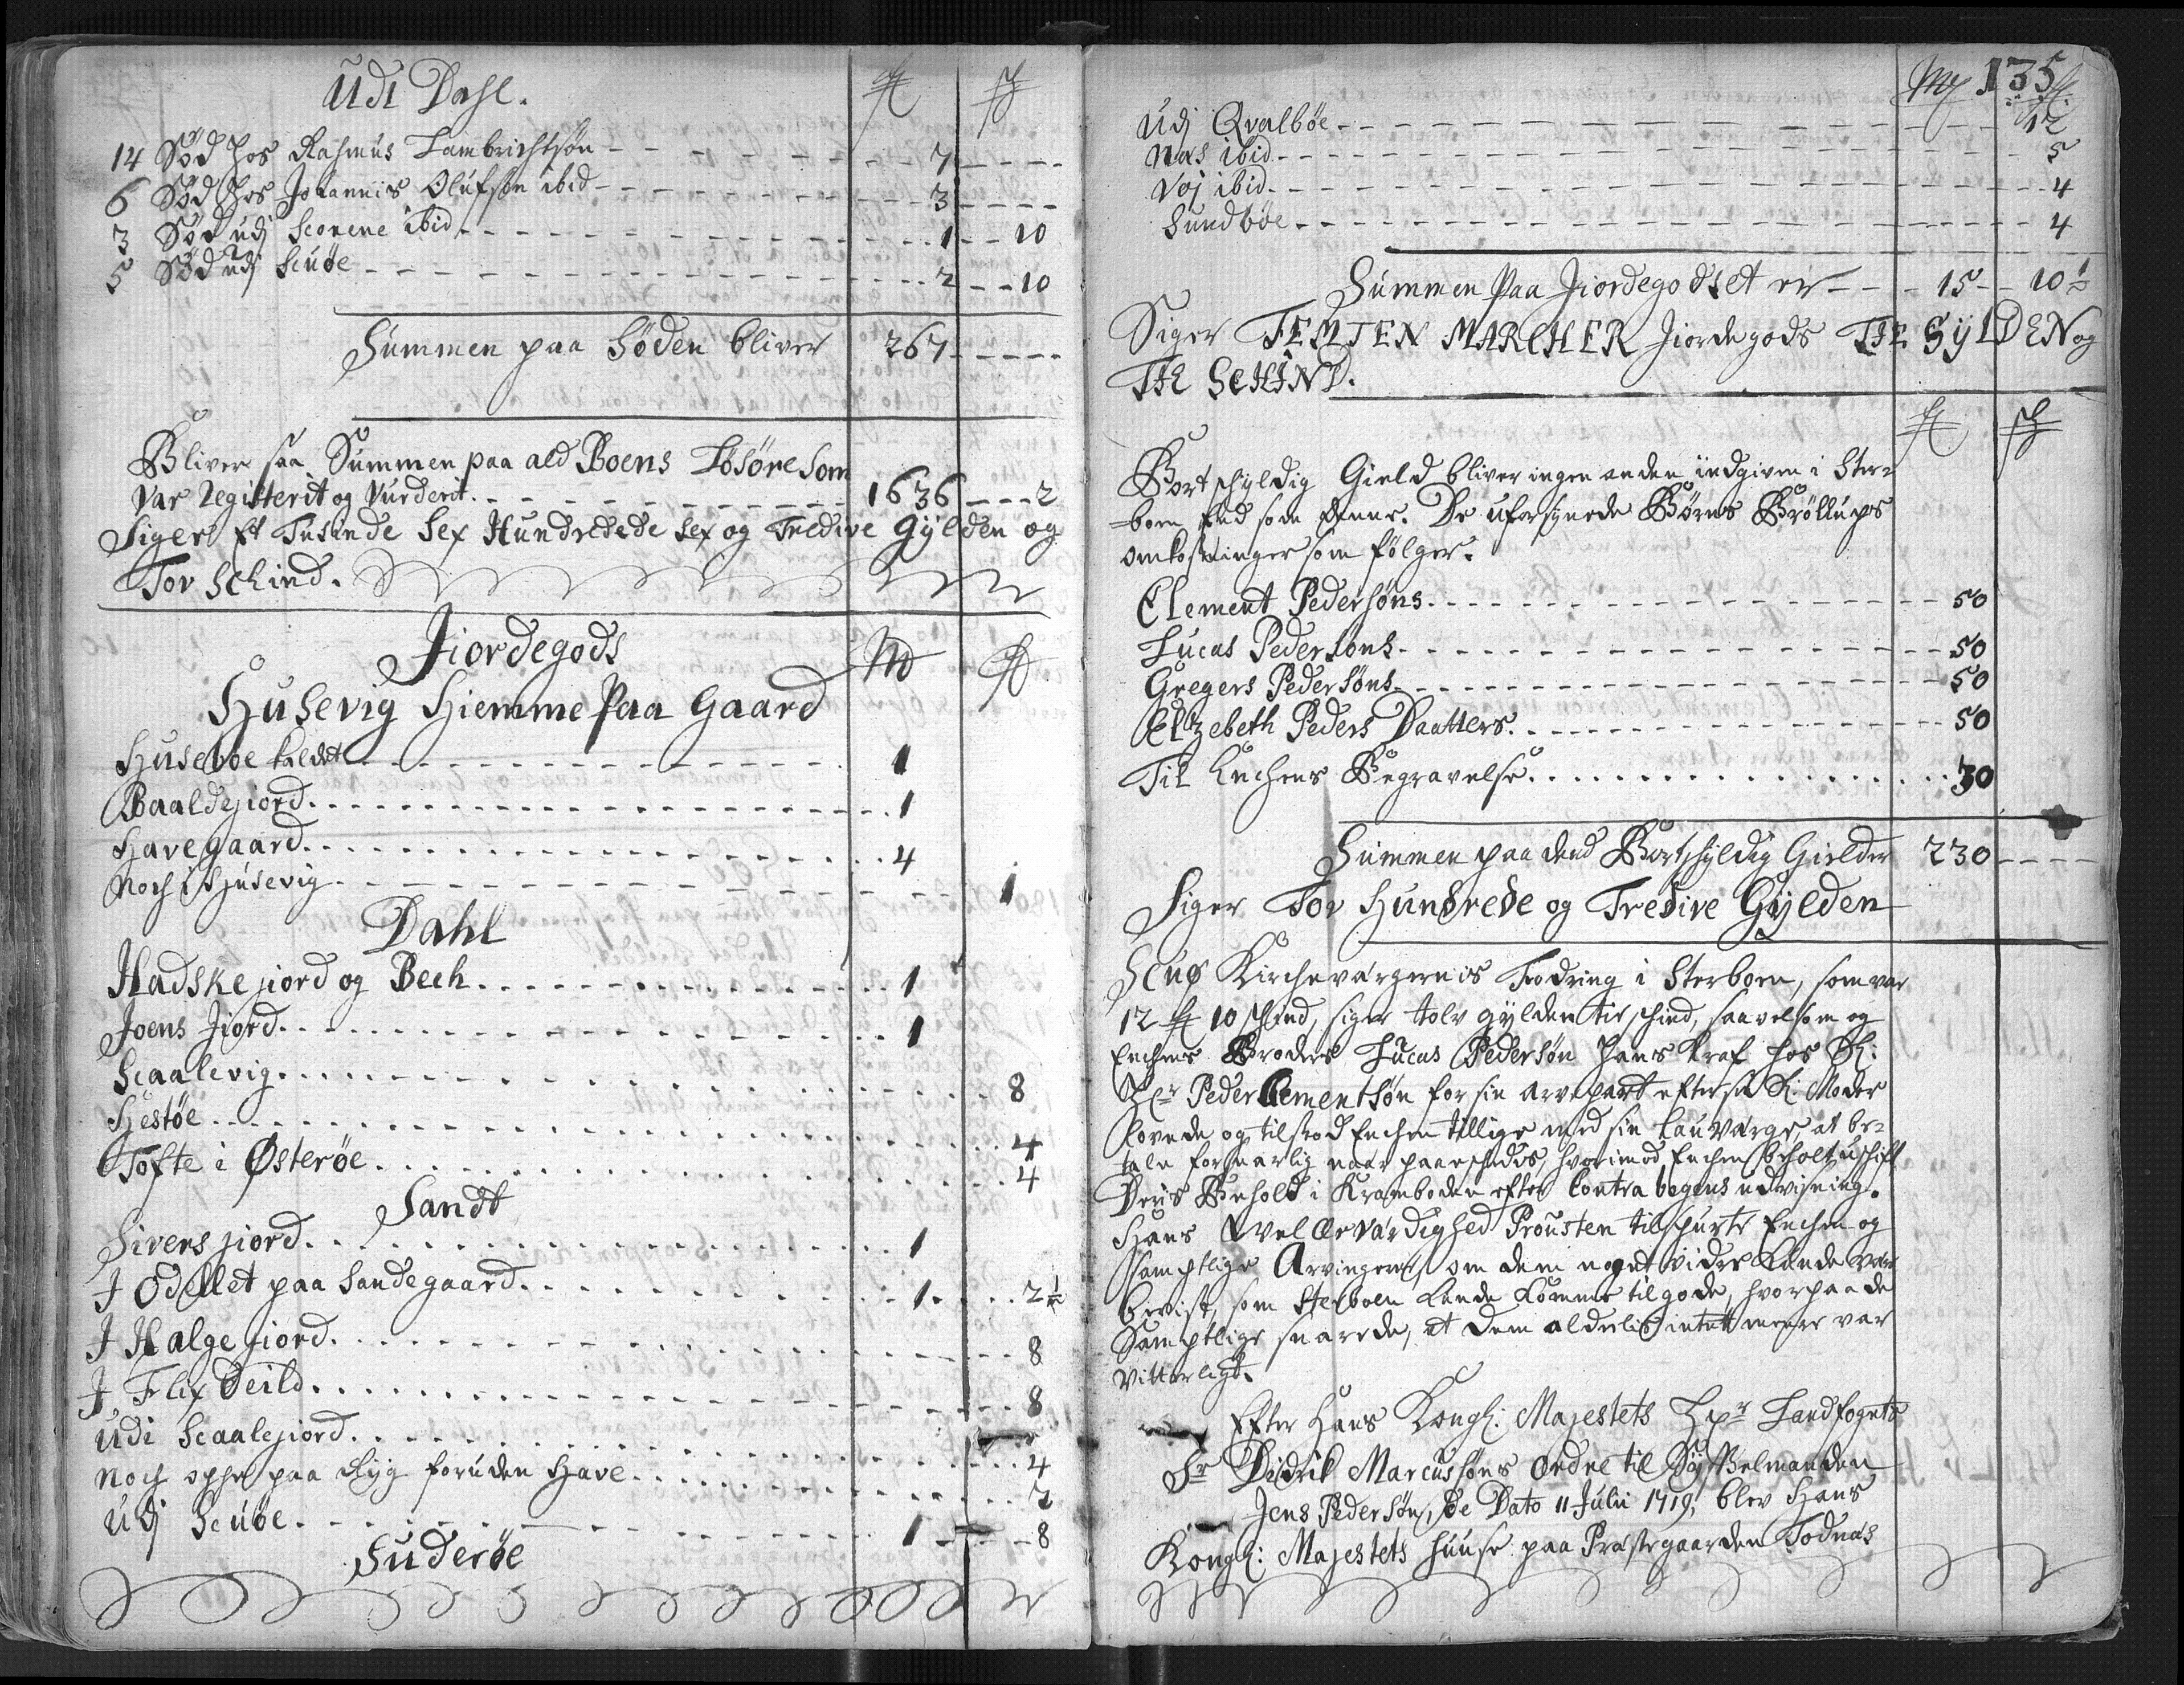 Udi Dahl.
14 Sød hos Rasmus Lambrichtsøn 7
6 Sød hos Johannis Olufsøn ibid 3
3 Sød udj Scorene ibid 1 10
5 Sød udj Scuøe 2 10
Summen paa Søden bliver 267
Bliver saa Summen paa ald Boens Løsøre Som
Var Registerit og Vurderit 1636 2
Siger Et Tusinde Sex Hundredede Sex og Tredive Gylden og
Tov Schind.
Jiordegods
Husevig Hiemme Paa Gaard
Husebøe kaldet 1
Baaldejiord 1
Havegaard 4
Noch i Husevig 1
Dahl
Hadskejiord og Bech 1
Joens Jiord 1
Scaalevig 8
Hestøe 4
Tofte i Østerøe 4
Sandt
Sivers jiord 1
I Odellet paa Sandegaard 1 2½
I Halgejiord 8
I Flix Deild 8
Udi Scaalejiord 4
Noch paa Ryg foruden Have 2
Udj Scuøe 1 8
Suderøe
135
Udj Qvalbøe 12
Næs ibid 5
Voj ibid 4
Sundbøe 4
Summen Paa Jiordegodset er 15 10½
Siger FEMTEN MARCHER Jiordegods TIE GYLDEN og
TIE SCHIND.
Bortschyldig Gield bliver ingen anden indgiven i Ster-
boen End som denne. De uforsynede Børns Brøllups
omkostninger som følger.
Clement Pedersøns 50
Lucas Pedersøns 50
Gregers Pedersøns 50
Elzebeth Peders Daatters 50
Til Enchens Begravelse 30
Summen paa dend Bortschyldig Gielder 230
Siger Tov Hundrede og Tredive Gylden
Scuø Kirchevergernis Fodring i Sterboen, som var
12 10 schind, siger tolv gylden tie schind, saavelsom og
Enchens Broders Lucas Pedersøn hans Kraf hos Sl:
Hr Peder Clementsøn for sin arvepart efter sl: Moder
lovede og tilstod Enchen tillige med sin Lauværge at be-
tale forsvarlig naar paaeschedes, hvorimod Enchen beholt uschift
Deris Behold i Kramboden efter Contra bogens udvisning.
Hans Wel Ærværdighed Prousten tilspurte Enchen og
samptlige Arvingerne, om dem noget vidre Kunde vær
bevist, som Sterboen Kunde Komme tilgode, hvorpaa de
Samptlige svarede, at dem alddelis intet meere var
Vitterligt.
Efter Hans Kongl: Majestets Landfogets
Sr Didrik Marcussøns Ordre til Sysselmanden
Jens Pedersøn, De Dato 11 Julii 1719, blev Hans
Kongl: Majestets Huuse paa Præstegaarden Todnæs